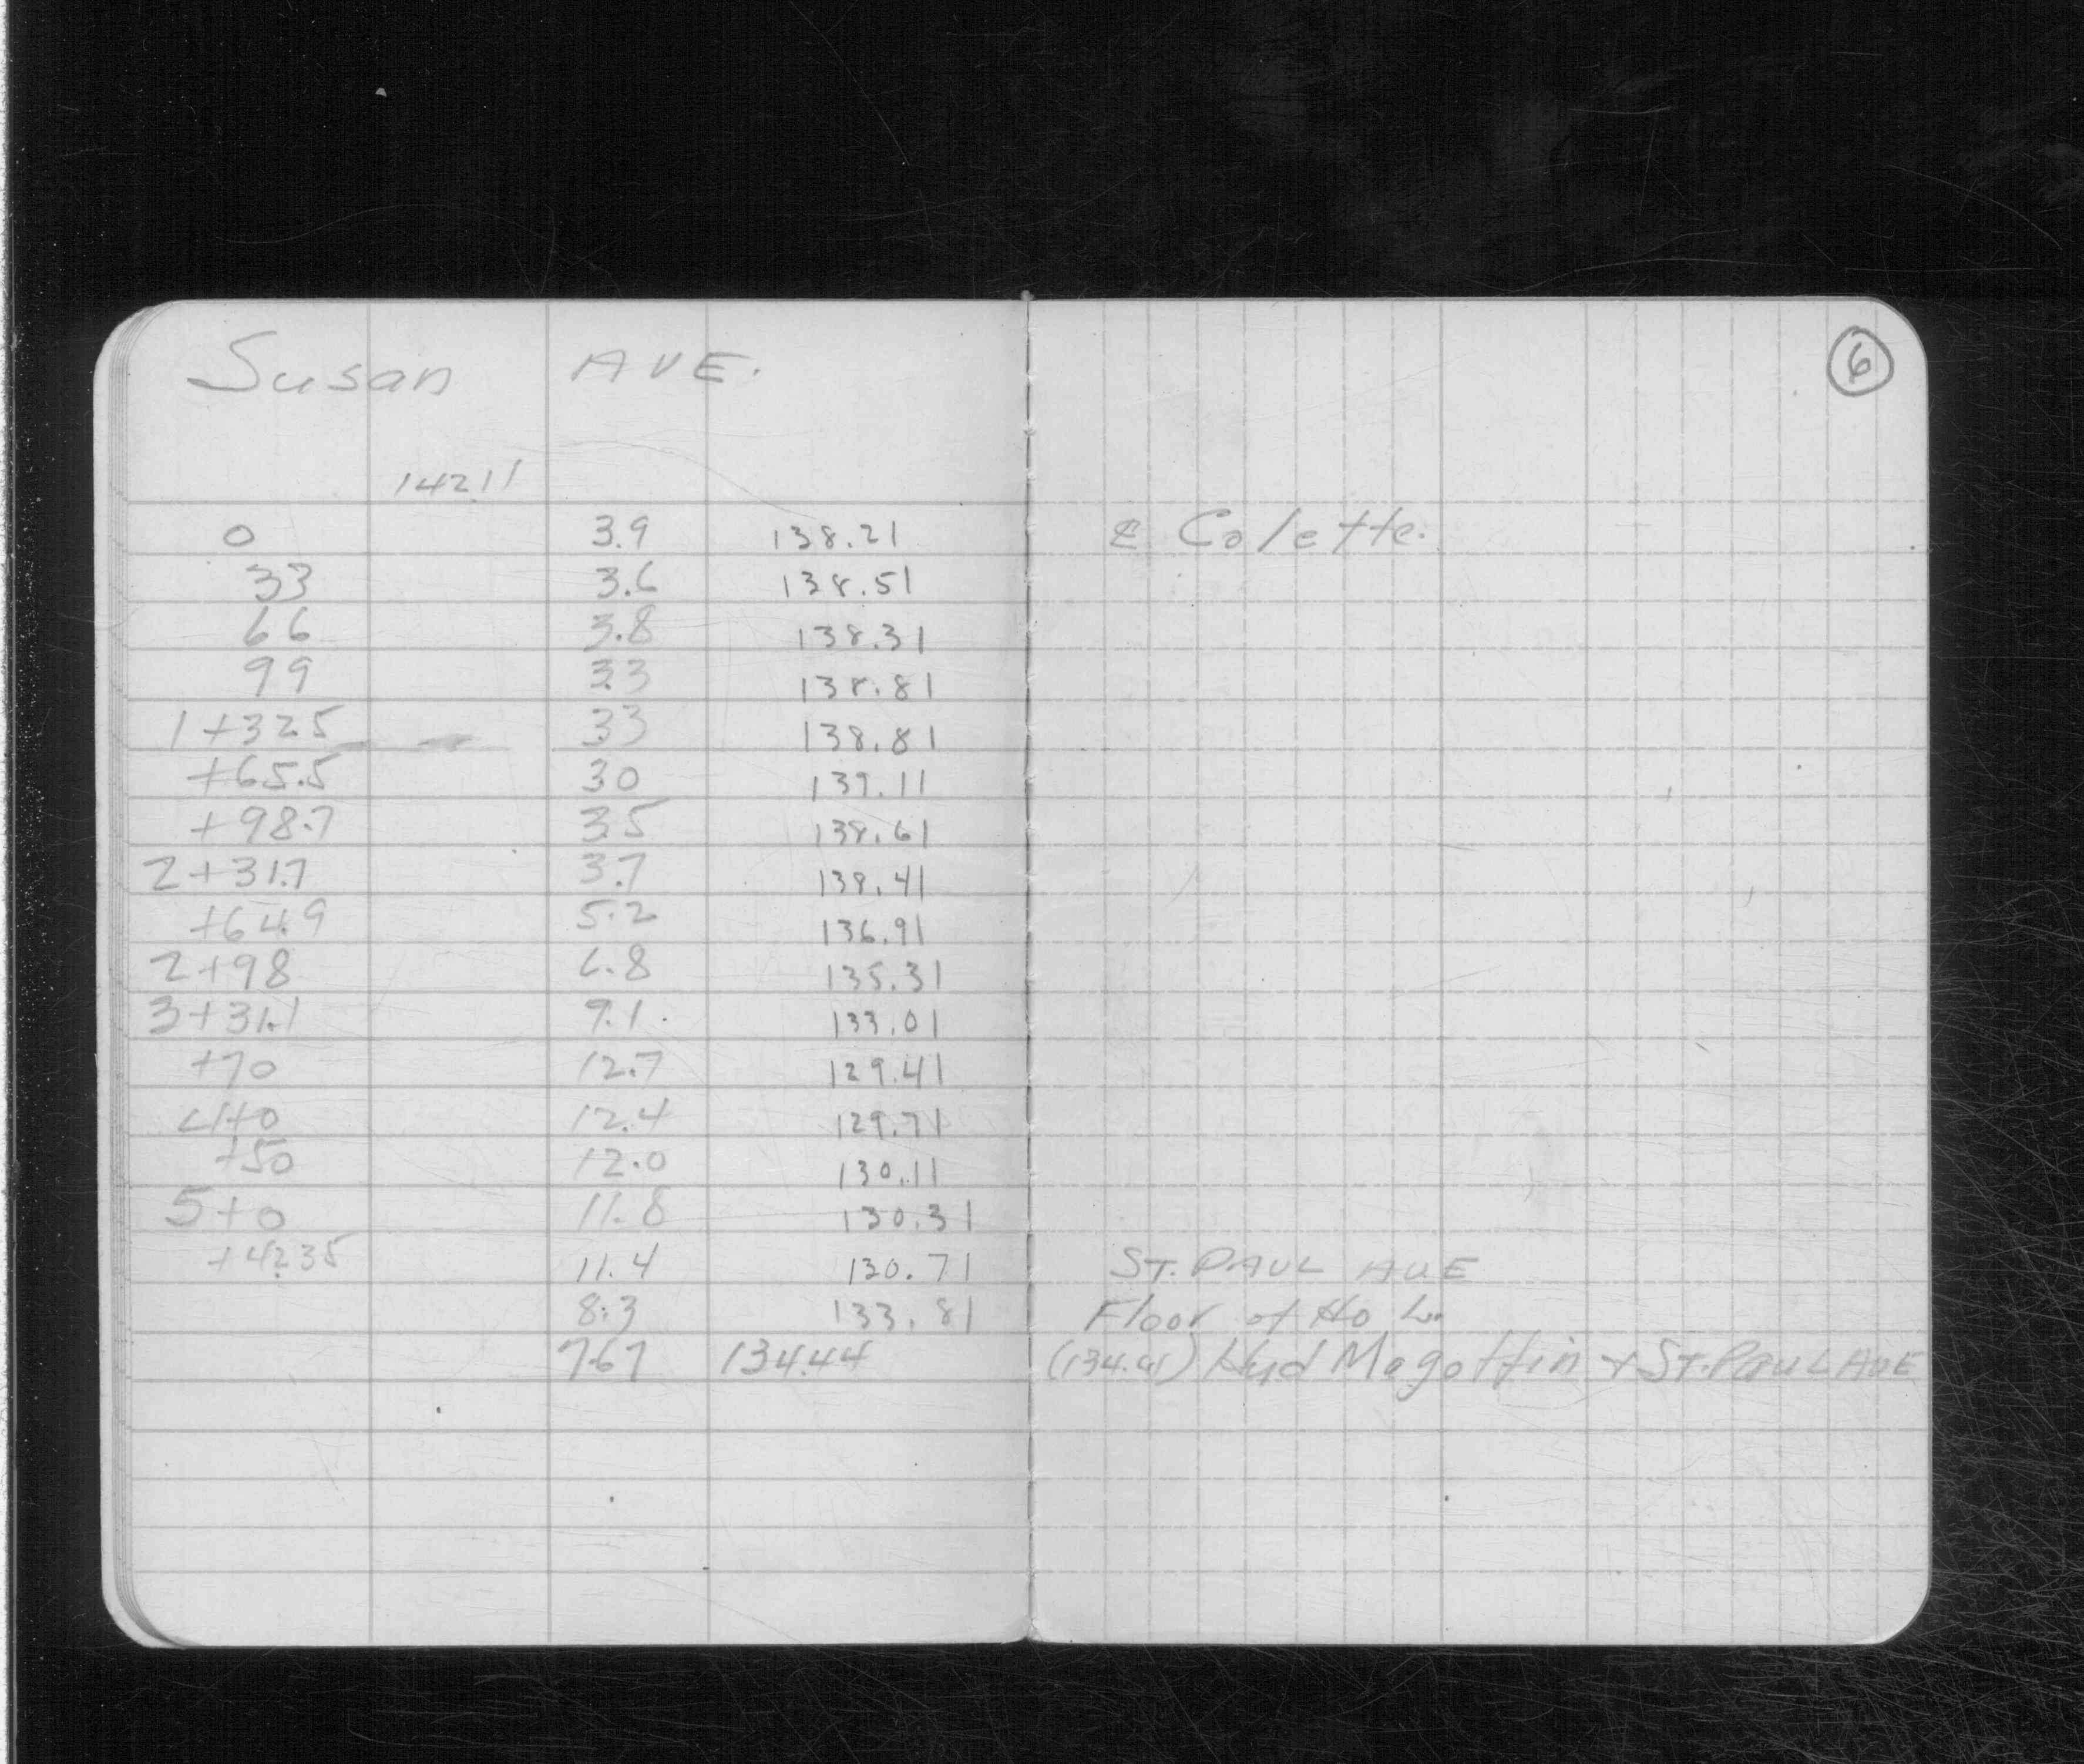 Susan AVE.
6
142.11
0 3.9 138.21 ℄ Colette.
33 3.6 138.51
66 3.8 138.31
99 3.3 138.81
1+32.5 3.3 138.81
+65.5 3.0 139.11
+98.7 3.5 138.61
2+31.7 3.7 138.41
+64.9 5.2 136.91
2+98 6.8 135.31
3+31.1 9.1 133.01
+70 12.7 129.41
4+0 12.4 129.71
+50 12.0 130.11
5+0 11.8 130.31
+42.35 11.4 130.71 ST. PAUL AVE
8.3 133.81 Floor of Ho
7.67 134.44 (134.41) Hyd Magoffin + ST. PAUL AVE